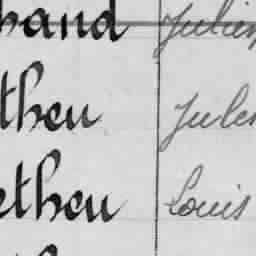 hand Julien
theu Jules
etheu Louis